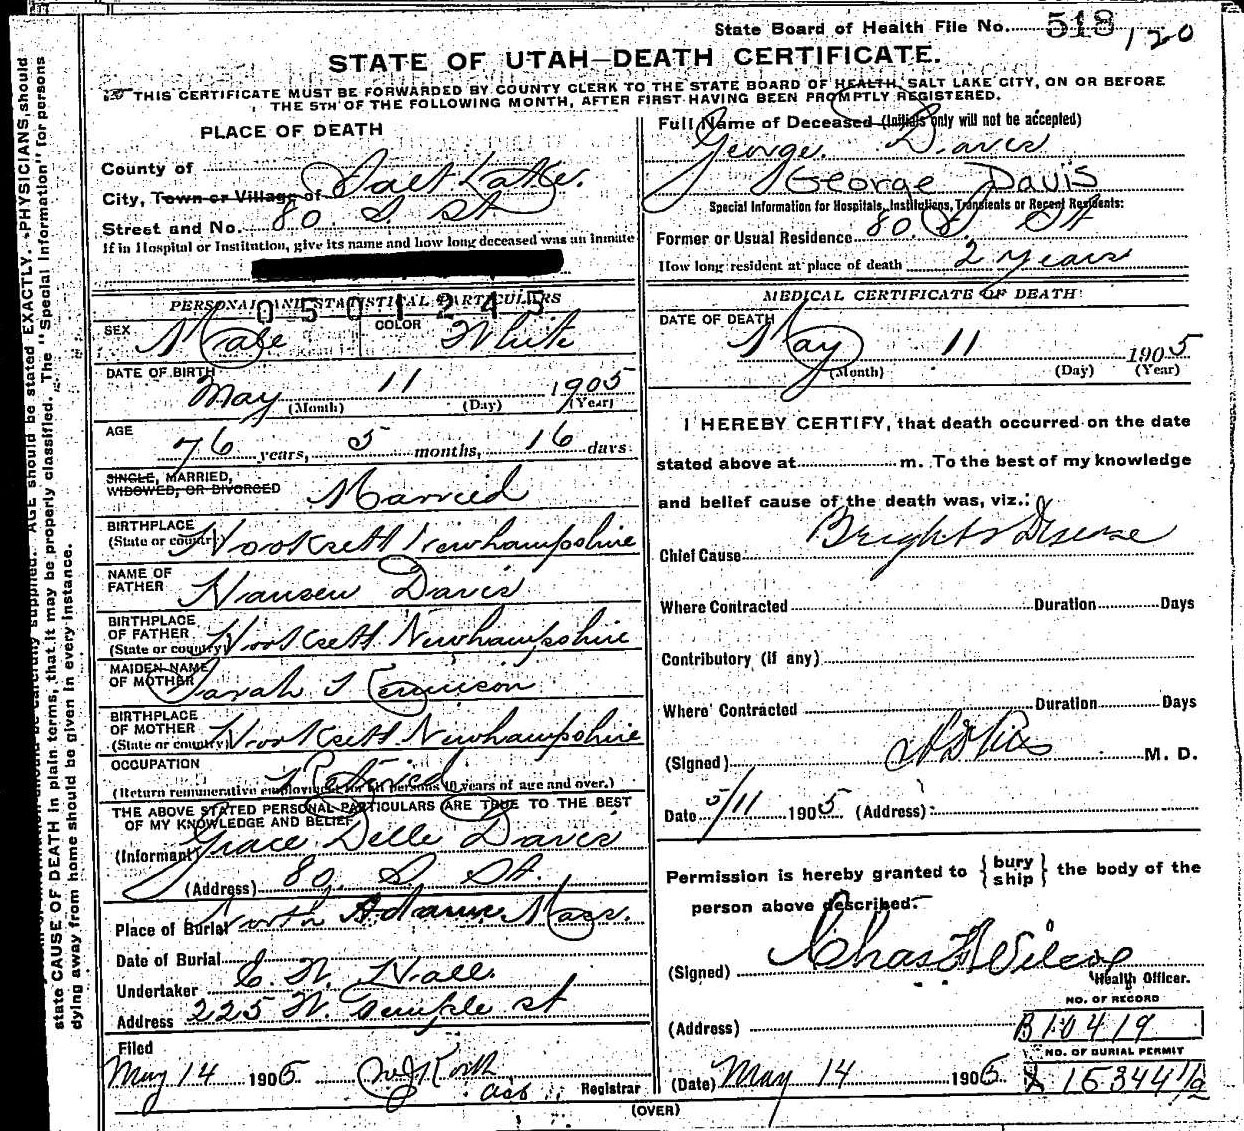 State Board of Health File No. 518 120
STATE OF UTAH—DEATH CERTIFICATE.
THIS CERTIFICATE MUST BE FORWARDED BY COUNTY CLERK TO THE STATE BOARD OF HEALTH, SALT LAKE CITY, ON OR BEFORE
THE 5TH OF THE FOLLOWING MONTH, AFTER FIRST HAVING BEEN PROMPTLY REGISTERED.
PLACE OF DEATH
County of
City, Town or Village of Salt Lake.
Street and No. 80 S St
If in Hospital or Institution, give its name and how long deceased was an inmate
PERSONAL AND STATISTICAL PARTICULARS
0501245
SEX Male COLOR White
DATE OF BIRTH May 11 1905
(Month) (Day) (Year)
AGE 76 years, 5 months, 16 days
SINGLE, MARRIED,
WIDOWED, OR DIVORCED Married
BIRTHPLACE
(State or country) Hooksett Newhampshire
NAME OF
FATHER Hansen Davis
BIRTHPLACE
OF FATHER
(State or country) Hooksett Newhampshire
MAIDEN NAME
OF MOTHER Sarah T
BIRTHPLACE
OF MOTHER
(State or country) Hooksett Newhampshire
OCCUPATION Retired
(Return remunerative employment for all persons 10 years of age and over.)
THE ABOVE STATED PERSONAL PARTICULARS ARE TRUE TO THE BEST
OF MY KNOWLEDGE AND BELIEF
(Informant) Grace Delle Davis
(Address) 80 S St.
Place of Burial North Adams Mass.
Date of Burial
Undertaker E. W. Hall
Address 225 W. Temple st
Filed
May 14 1905 Registrar
Full Name of Deceased (Initials only will not be accepted)
George Davis
George Davis
Special Information for Hospitals, Institutions, Transients or Recent Residents:
Former or Usual Residence 80 S St
How long resident at place of death 2 years
MEDICAL CERTIFICATE OF DEATH
DATE OF DEATH
May 11 1905
(Month) (Day) (Year)
I HEREBY CERTIFY, that death occurred on the date
stated above at m. To the best of my knowledge
and belief cause of the death was, viz.:
Chief Cause Brights Disease
Where Contracted Duration Days
Contributory (if any)
Where Contracted Duration Days
(Signed) M. D.
Date 5/11 1905 (Address)
Permission is hereby granted to { bury ship } the body of the
person above described.
(Signed) Chas F Wilcox
Health Officer.
NO. OF RECORD
(Address) B10419
NO. OF BURIAL PERMIT
(Date) May 14 1905 15344 1/2
(OVER)
AGE should be stated EXACTLY. PHYSICIANS should
state CAUSE OF DEATH in plain terms, that it may be properly classified. The "Special Information" for persons
dying away from home should be given in every instance.